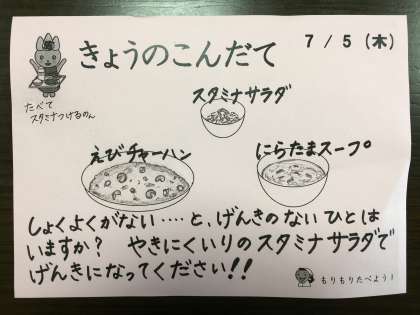 きょうのこんだて
7 / 5 (木)
たべて
スタミナつけるのん
スタミナサラダ
えびチャーハン
にらたまスープ
しょくよくがない‥‥と、げんきのないひとは
いますか? やきにくいりのスタミナサラダで
げんきになってください!!
もりもりたべよう!